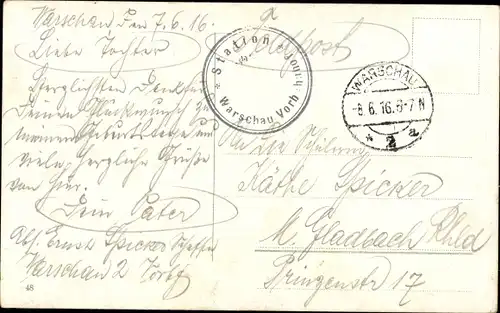 Warschau den 7.6.16.
Liebe Tochter
Herzlichsten Dank für
Deinen Glückwunsch zu
meinem Geburtstage und
viele herzliche Grüße
von hier.
Dein Vater
Abs. Ernst Spicker
Warschau 2
48
Feldpost
Station
Warschau Vorb
WARSCHAU
-8.6.16.6-7N
* 2 a
An die Schülerin
Käthe Spicker
M. Gladbach Rhld
Prinzenstr 17